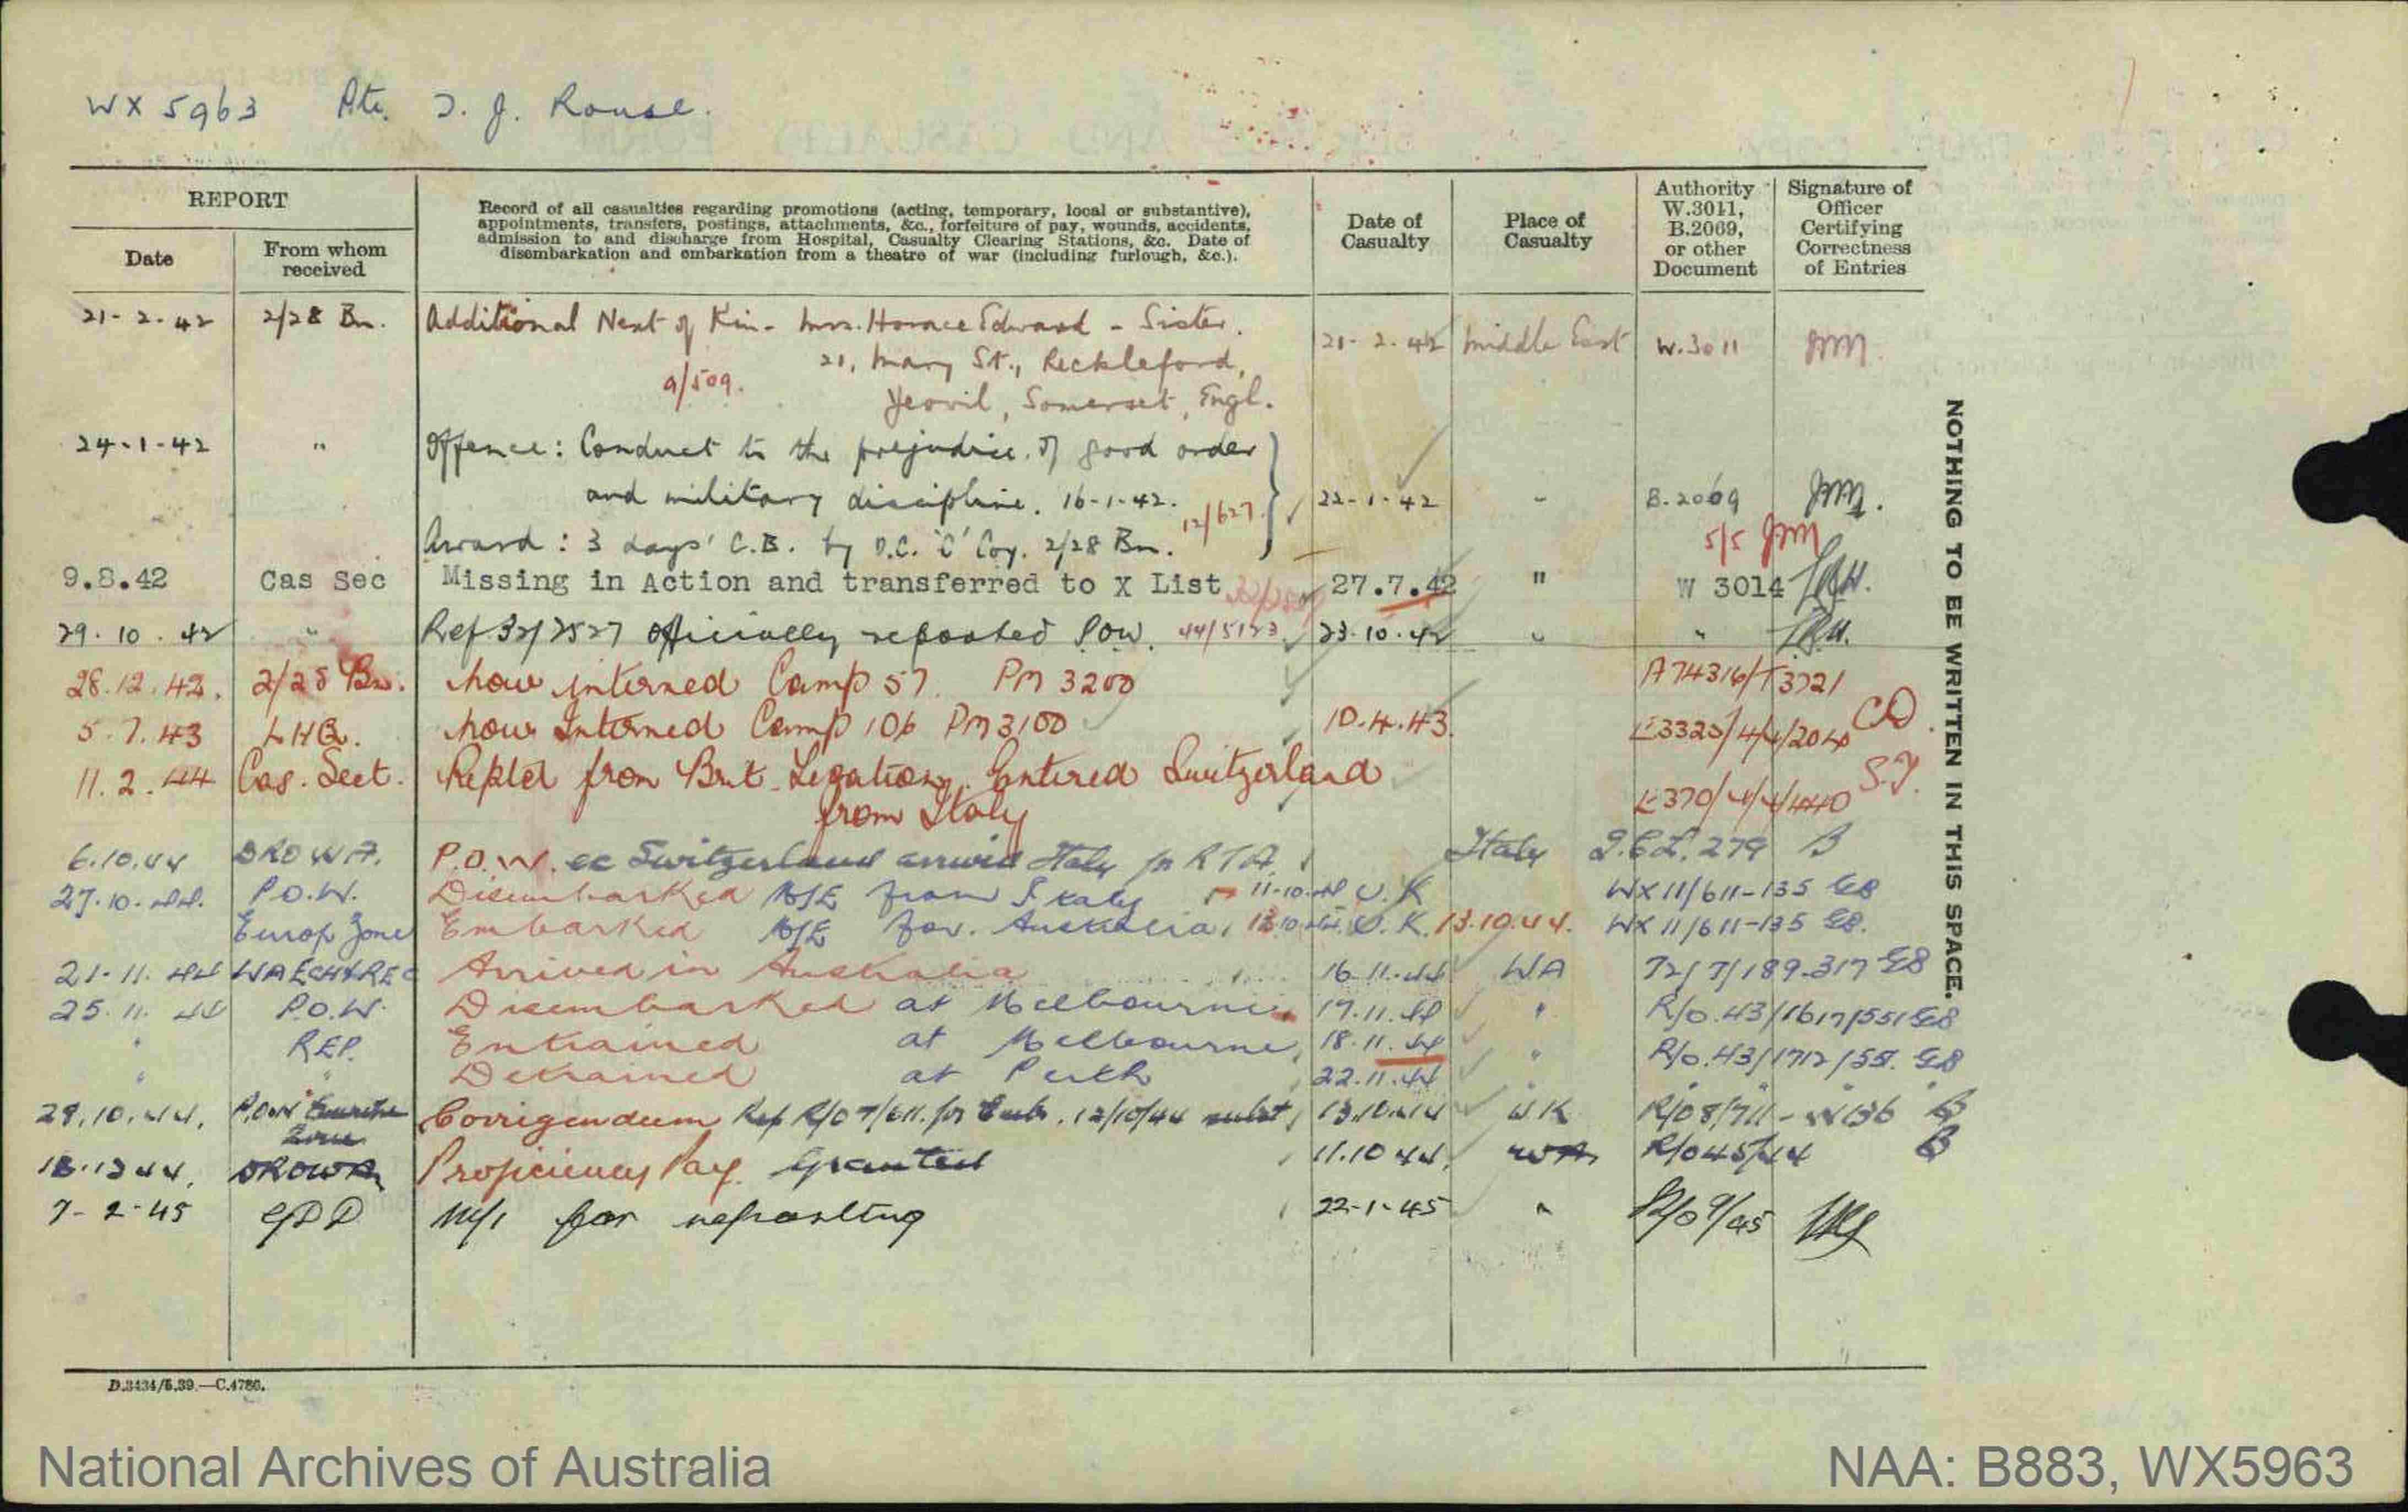 WX 5963 Pte. J. Rouse.
REPORT
Date
From whom received
Record of all casualties regarding promotions (acting, temporary, local or substantive),
appointments, transfers, postings, attachments, &c., forfeiture of pay, wounds, accidents,
admission to and discharge from Hospital, Casualty Clearing Stations, &c. Date of
disembarkation and embarkation from a theatre of war (including furlough, &c.).
Date of Casualty
Place of Casualty
Authority W.3011, B.2069, or other Document
Signature of Officer Certifying Correctness of Entries
21-2-42 2/28 Bn. Additional Next of Kin - Mrs. Horace Edward - Sister. 21-2-42 Middle East W.3011
21, Mary St., Reckleford,
9/509.
Yeovil, Somerset, Engl.
24-1-42 " Offence: Conduct to the prejudice of good order
and military discipline. 16-1-42. 22-1-42 " B.2069
12/627
Award: 3 days' C.B. by O.C. 'C' Coy. 2/28 Bn. 5/5
9.8.42 Cas Sec Missing in Action and transferred to X List 27.7.42 " W 3014
29.10.42 " Ref 32/2527 Officially reported P.O.W. 44/5123 23.10.42 " "
28.12.42. 2/28 Bn. Now interned Camp 57. PM 3200 A74316/T3721
5.7.43 LHQ. Now Interned Camp 106 PM 3100 10.4.43.
11.2.44 Cas. Sect. Replet from Brit. Legation. Entered Switzerland
from Italy
6.10.44 DROWA. P.O.W. ex Switzerland arrived Italy for R.T.A. Italy 279
27.10.44. P.O.W. Disembarked M/E from Italy 11-10-44 U.K WX11/611-135
Europ Zone Embarked M/E for Australia, 13.10.44. U.K. 13.10.44. WX11/611-135
21-11-44 WA Ech & Rec Arrived in Australia 16-11-44 WA 72/7/189-317
25.11.44 P.O.W. Disembarked at Melbourne, 17.11.44 " R/O.43/1617/551
" REP. Entrained at Melbourne, 18.11.44 " R/O.43/1712/551.
" " Detrained at Perth 22.11.44
28.10.44. P.O.W. Zone Corrigendum Ref R/O 7/611. for Emb. 12/10/44 subst 13.10.44 UK R/O 8/711
18.12.44. DROWA Proficiency Pay. Granted 11.10.44. WA R/O 45/44
7-2-45 GDD M/I for reposting 22-1-45 " R/O 9/45
NOTHING TO BE WRITTEN IN THIS SPACE.
D.3434/5.39.—C.4786.
National Archives of Australia
NAA: B883, WX5963